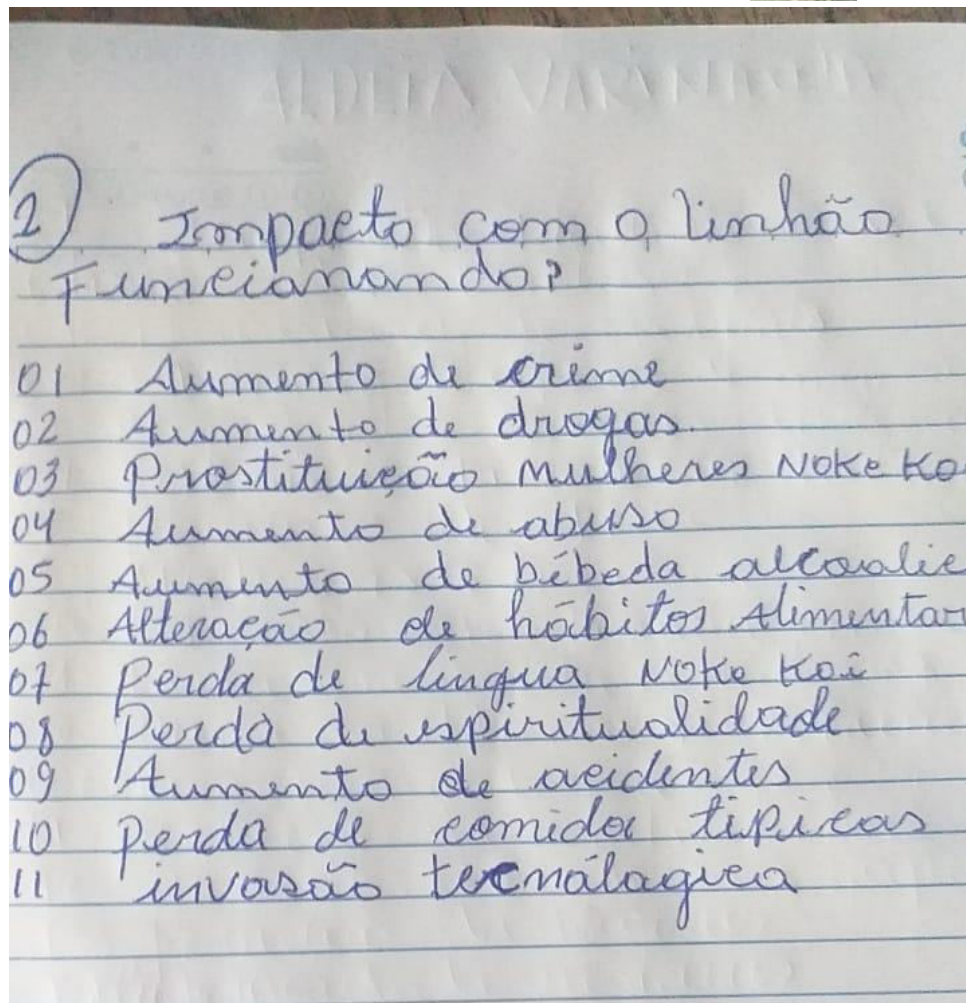 2) Impacto com o linhão
Funcionando?
01 Aumento de crime
02 Aumento de drogas.
03 Prostituição mulheres NOKE KO
04 Aumento de abuso
05 Aumento de bêbeda alcoolic
06 Alteração de hábitos Alimentar
07 Perda de lingua NOKE KOI
08 Perda de espiritualidade
09 Aumento de acidentes
10 Perda de comidas tipicas
11 invasão tecnólogica